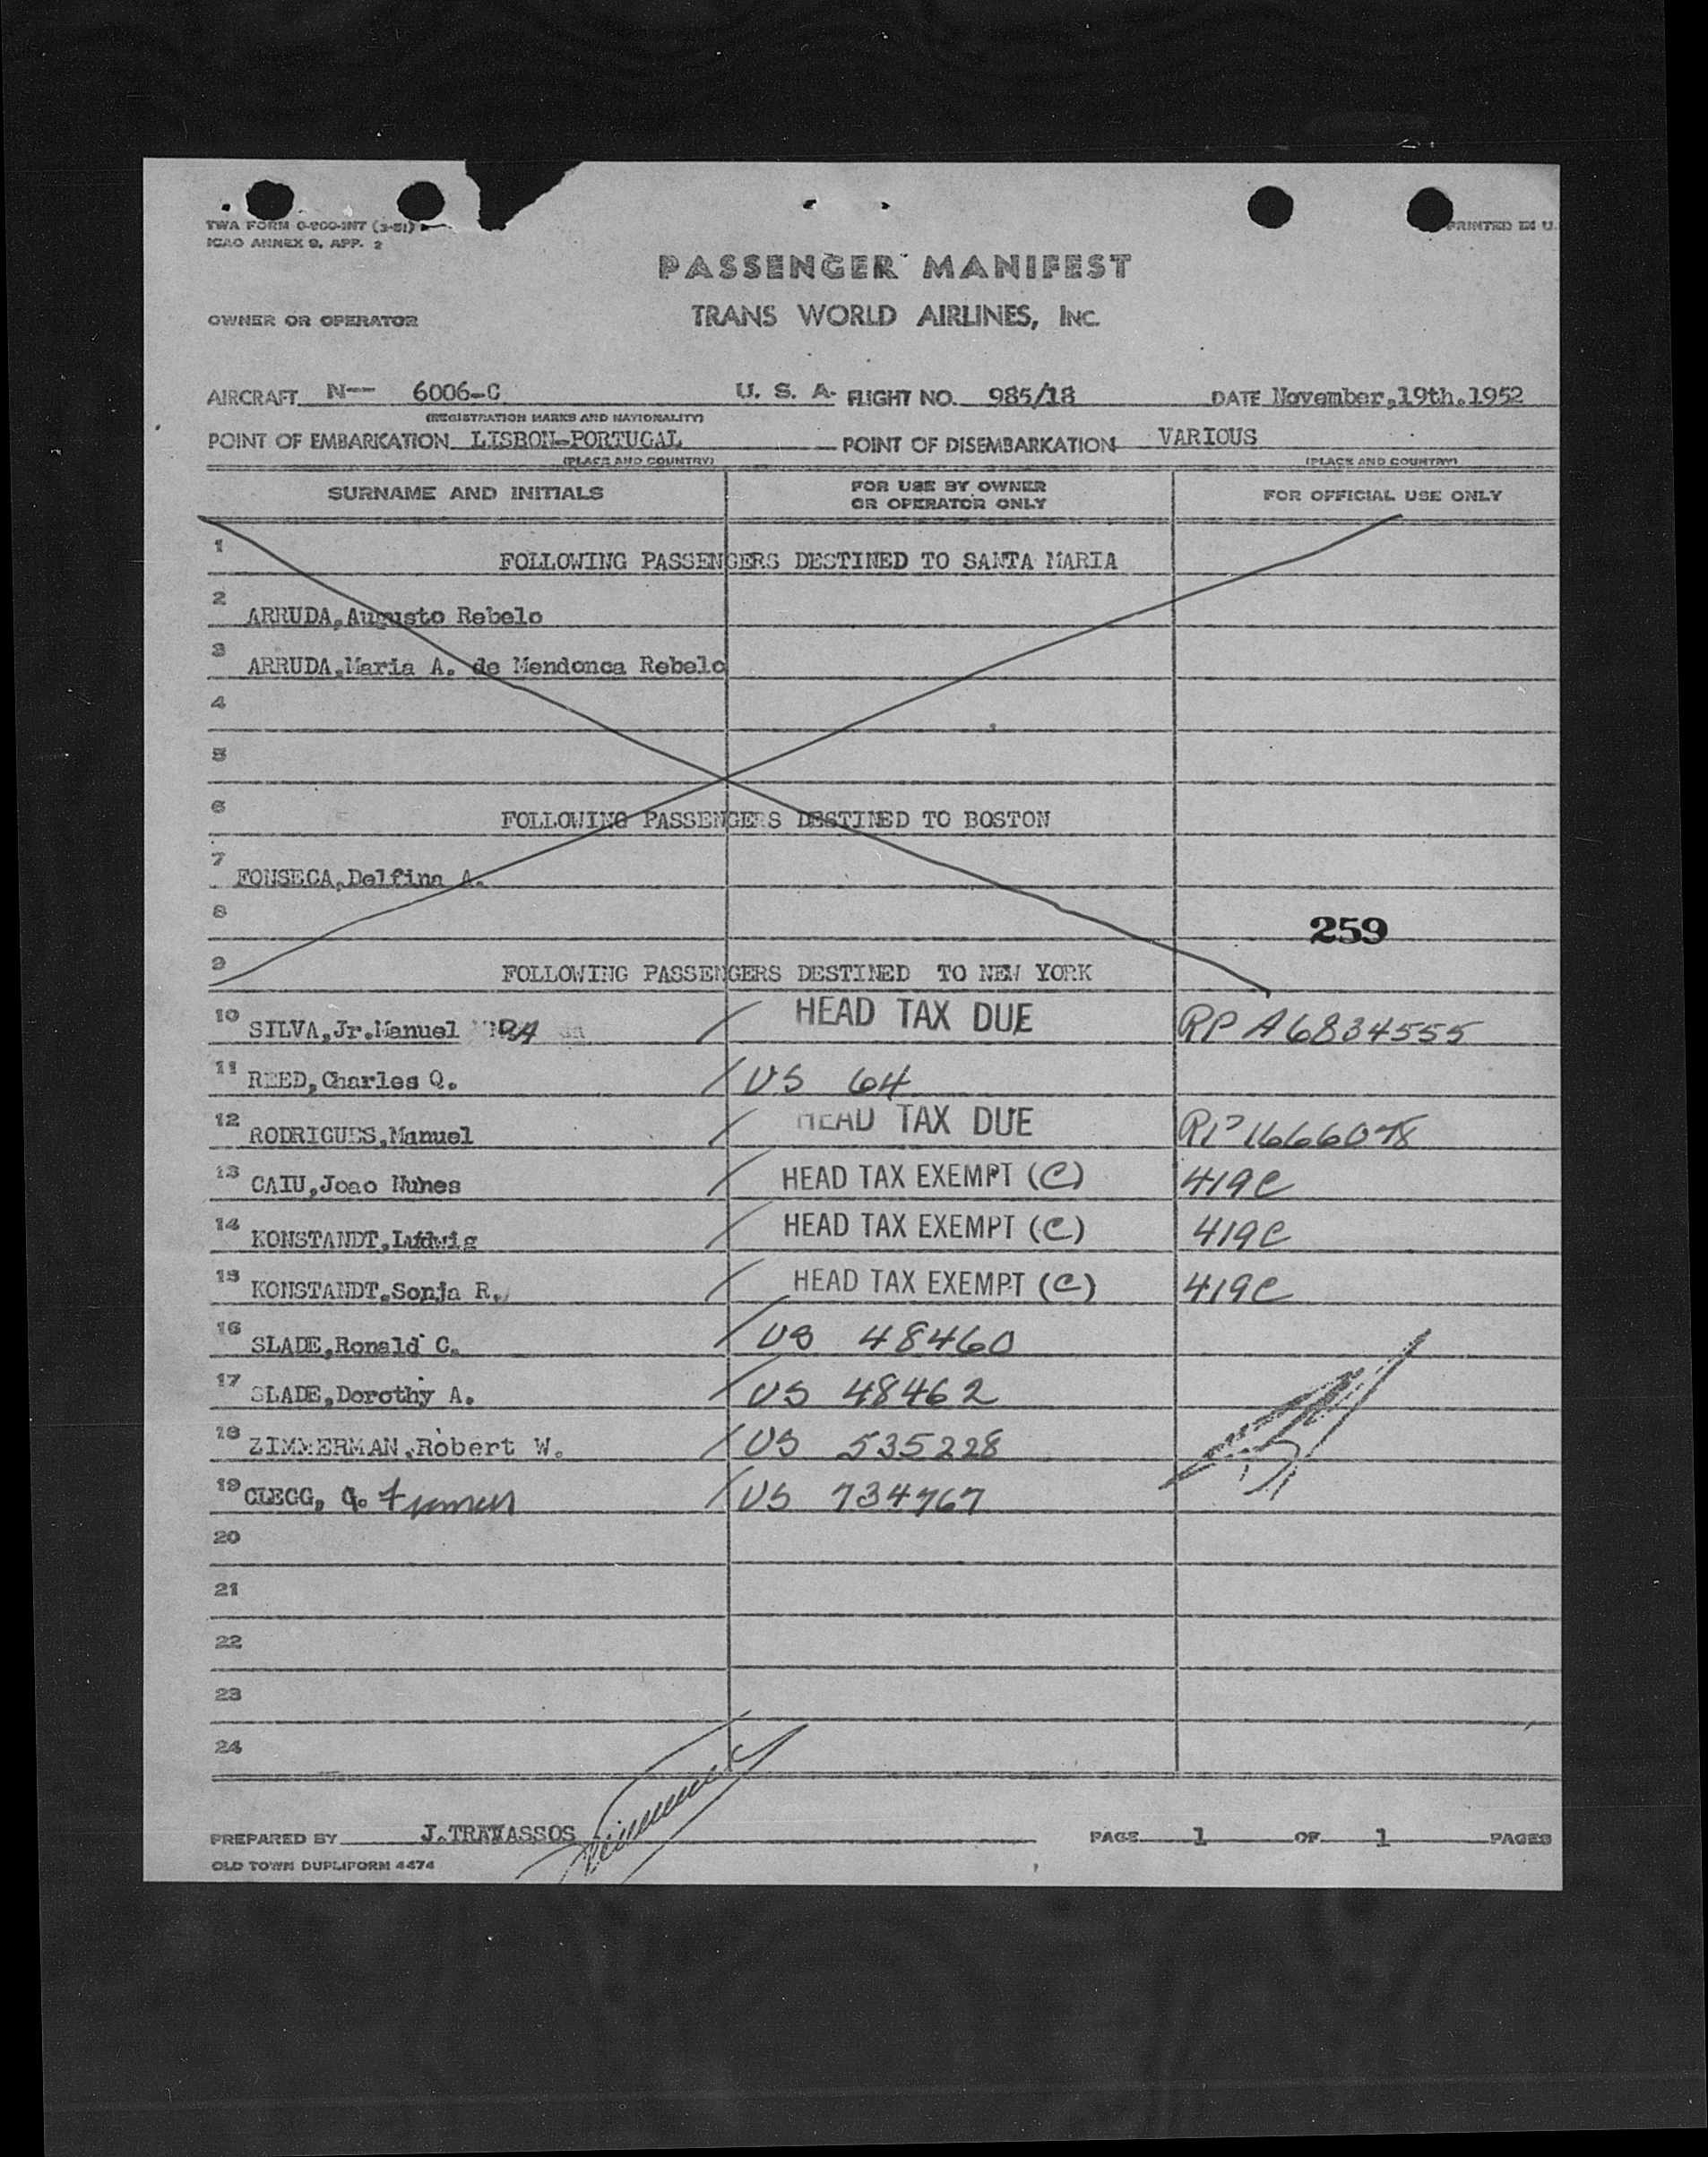 TWA FORM O-200-INT (3-51)
ICAO ANNEX 9, APP. 2
PRINTED IN U.
PASSENGER MANIFEST
OWNER OR OPERATOR TRANS WORLD AIRLINES, INC.
AIRCRAFT N-- 6006-C U. S. A. FLIGHT NO. 985/18 DATE November,19th.1952
(REGISTRATION MARKS AND NATIONALITY)
POINT OF EMBARKATION LISBON-PORTUGAL POINT OF DISEMBARKATION VARIOUS
(PLACE AND COUNTRY) (PLACE AND COUNTRY)
SURNAME AND INITIALS FOR USE BY OWNER OR OPERATOR ONLY FOR OFFICIAL USE ONLY
1 FOLLOWING PASSENGERS DESTINED TO SANTA MARIA
2 ARRUDA,Augusto Rebelo
3 ARRUDA,Maria A. de Mendonca Rebelo
4
5
6 FOLLOWING PASSENGERS DESTINED TO BOSTON
7 FONSECA,Delfina A.
8 259
9 FOLLOWING PASSENGERS DESTINED TO NEW YORK
10 SILVA,Jr.Manuel HEAD TAX DUE RP A6834555
11 REED,Charles Q. US 64
12 RODRIGUES,Manuel HEAD TAX DUE RP 1666078
13 CAIU,Joao Nunes HEAD TAX EXEMPT (C) 419C
14 KONSTANDT,Ludwig HEAD TAX EXEMPT (C) 419C
15 KONSTANDT,Sonja R. HEAD TAX EXEMPT (C) 419C
16 SLADE,Ronald C. US 48460
17 SLADE,Dorothy A. US 48462
18 ZIMMERMAN,Robert W. US 535228
19 CLEGG, US 734767
20
21
22
23
24
PREPARED BY J.TRAVASSOS PAGE 1 OF 1 PAGES
OLD TOWN DUPLIFORM 4474